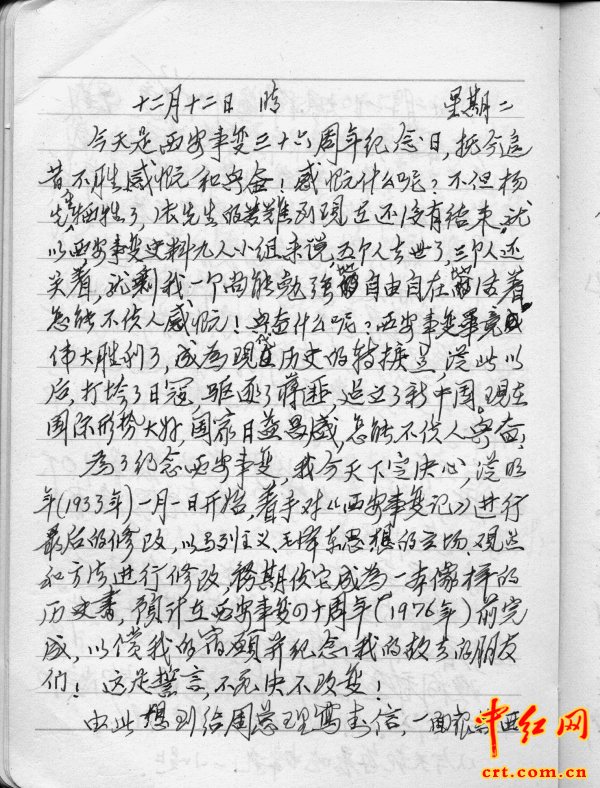 十二月十二日 晴 星期二
今天是西安事变三十六周年纪念日，抚今追
昔不胜感慨和兴奋！感慨什么呢？不但杨
先生牺牲了，张先生的苦难到现在还没有结束，就
以西安事变史料九人小组来说，五个人去世了，三个人还
关着，就剩我一个尚能勉强自由自在的活着
怎能不使人感慨！兴奋什么呢？西安事变毕竟成
伟大胜利了，成为现代历史的转换点，从此以
后，打垮了日寇，驱逐了蒋匪，建立了新中国。现在
国际形势大好，国家日益昌盛，怎能不使人兴奋，
为了纪念西安事变，我今天下定决心，从明
年(1933年)一月一日开始，着手对《西安事变记》进行
最后的修改，以马列主义、毛泽东思想的立场、观点
和方法进行修改，务期使它成为一本像样的
历史书，预计在西安事变四十周年(1976年)前完
成，以偿我的宿愿并纪念我的故去的朋友
们！这是誓言，不死决不改变！
由此想到给周总理写封信，一面报告西
中红网
crt.com.cn